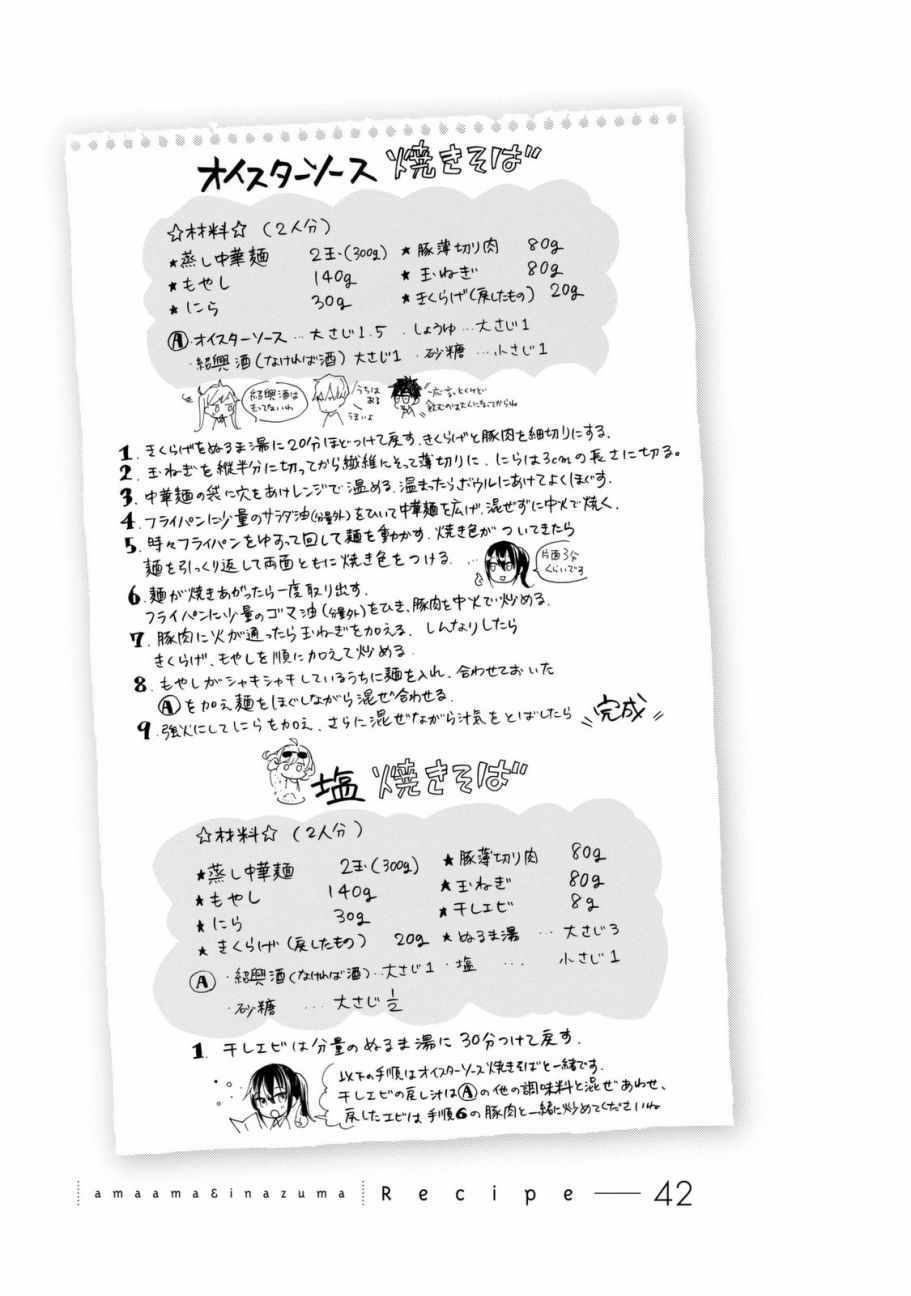 オイスターソース焼きそば
☆材料☆（2人分）
★蒸し中華麺 2玉(300g) ★豚薄切り肉 80g
★もやし 140g ★玉ねぎ 80g
★にら 30g ★きくらげ(戻したもの) 20g
Ⓐ・オイスターソース…大さじ1.5 ・しょうゆ…大さじ1
・紹興酒(なければ酒) 大さじ1 ・砂糖…小さじ1
紹興酒は
もってないわ
うちは
ある
うまいよ
一応言っとくけど
飲むのは大人になってからね
1. きくらげをぬるま湯に20分ほどつけて戻す。きくらげと豚肉を細切りにする。
2. 玉ねぎを縦半分に切ってから繊維にそって薄切りに、にらは3cmの長さに切る。
3. 中華麺の袋に穴をあけレンジで温める。温まったらボウルにあけてよくほぐす。
4. フライパンに少量のサラダ油(分量外)をひいて中華麺を広げ、混ぜずに中火で焼く。
5. 時々フライパンをゆすって回して麺を動かす。焼き色がついてきたら
麺を引っくり返して両面ともに焼き色をつける。…
片面3分
くらいです
6. 麺が焼きあがったら一度取り出す。
フライパンに少量のゴマ油(分量外)をひき、豚肉を中火で炒める。
7. 豚肉に火が通ったら玉ねぎを加える。しんなりしたら
きくらげ、もやしを順に加えて炒める。
8. もやしがシャキシャキしているうちに麺を入れ、合わせておいた
Ⓐを加え麺をほぐしながら混ぜ合わせる。
9. 強火にしてにらを加え、さらに混ぜながら汁気をとばしたら 完成
塩焼きそば
☆材料☆（2人分）
★蒸し中華麺 2玉(300g) ★豚薄切り肉 80g
★もやし 140g ★玉ねぎ 80g
★にら 30g ★干しエビ 8g
★きくらげ(戻したもの) 20g ★ぬるま湯…大さじ3
Ⓐ・紹興酒(なければ酒)…大さじ1 ・塩…小さじ1
・砂糖…大さじ1/2
1. 干しエビは分量のぬるま湯に30分つけて戻す。
以下の手順はオイスターソース焼きそばと一緒です。
干しエビの戻し汁はⒶの他の調味料と混ぜあわせ、
戻したエビは手順6の豚肉と一緒に炒めてくださいね
amaama&inazuma Recipe — 42